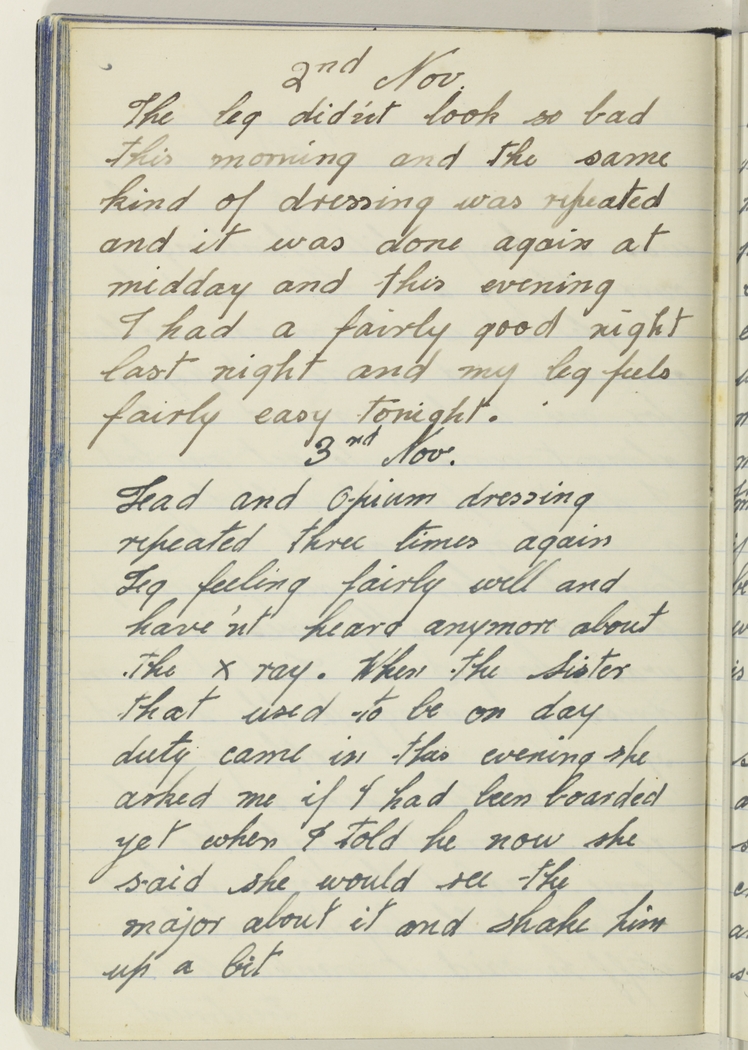 2nd Nov.
The leg did'nt look so bad
this morning and the same
kind of dressing was repeated
and it was done again at
midday and this evening
I had a fairly good night
last night and my leg feels
fairly easy tonight.
3nd Nov.
Lead and Opium dressing
repeated three times again
Leg feeling fairly well and
have'nt heard anymore about
the x ray. When the sister
that used to be on day
duty came in this evening she
asked me if I had been boarded
yet when I told he now she
said she would see the
major about it and shake him
up a bit